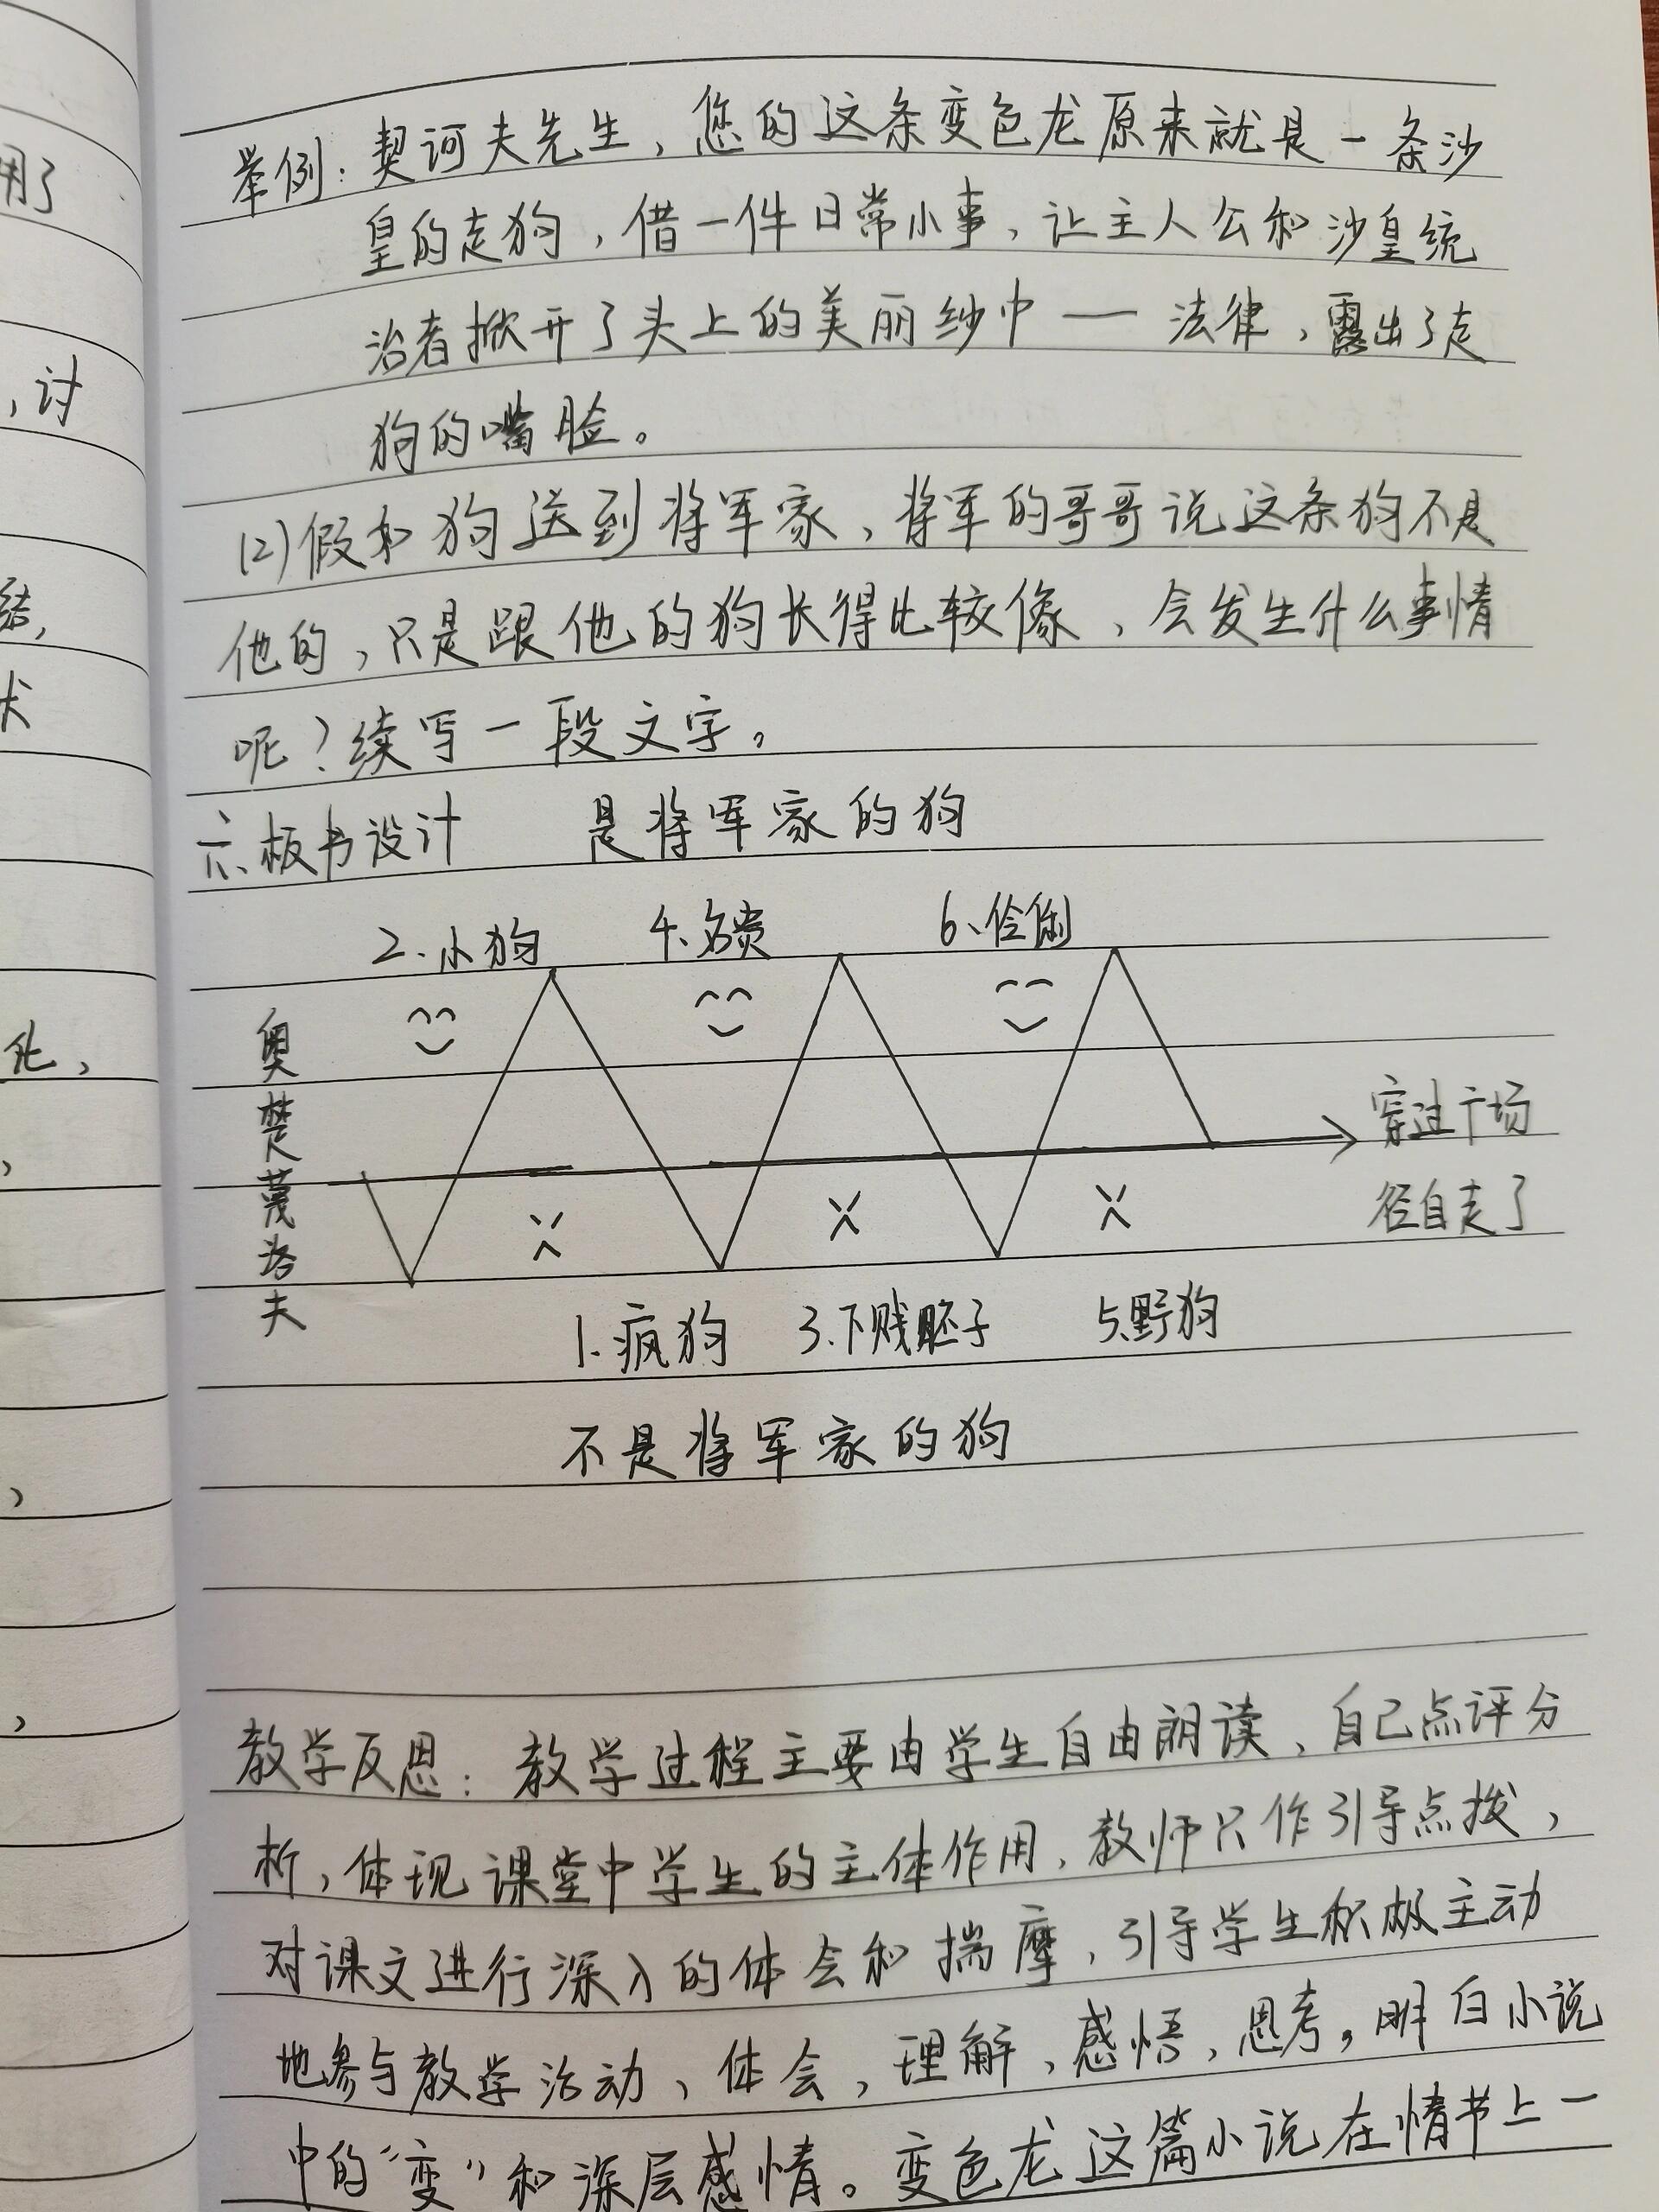 用了
，讨
结，
犬
化，
，
，
，
举例：契诃夫先生，您的这条变色龙原来就是一条沙
皇的走狗，借一件日常小事，让主人公和沙皇统
治者掀开了头上的美丽纱巾——法律，露出了走
狗的嘴脸。
(2)假如狗送到将军家，将军的哥哥说这条狗不是
他的，只是跟他的狗长得比较像，会发生什么事情
呢？续写一段文字。
六、板书设计 是将军家的狗
2、小狗 4、名贵 6、伶俐
奥楚蔑洛夫
穿过广场
径自走了
1、疯狗 3、下贱胚子 5、野狗
不是将军家的狗
教学反思：教学过程主要由学生自由朗读，自己点评分
析，体现课堂中学生的主体作用，教师只作引导点拨，
对课文进行深入的体会和揣摩，引导学生积极主动
地参与教学活动，体会，理解，感悟，思考，明白小说
中的“变”和深层感情。变色龙这篇小说在情节上一